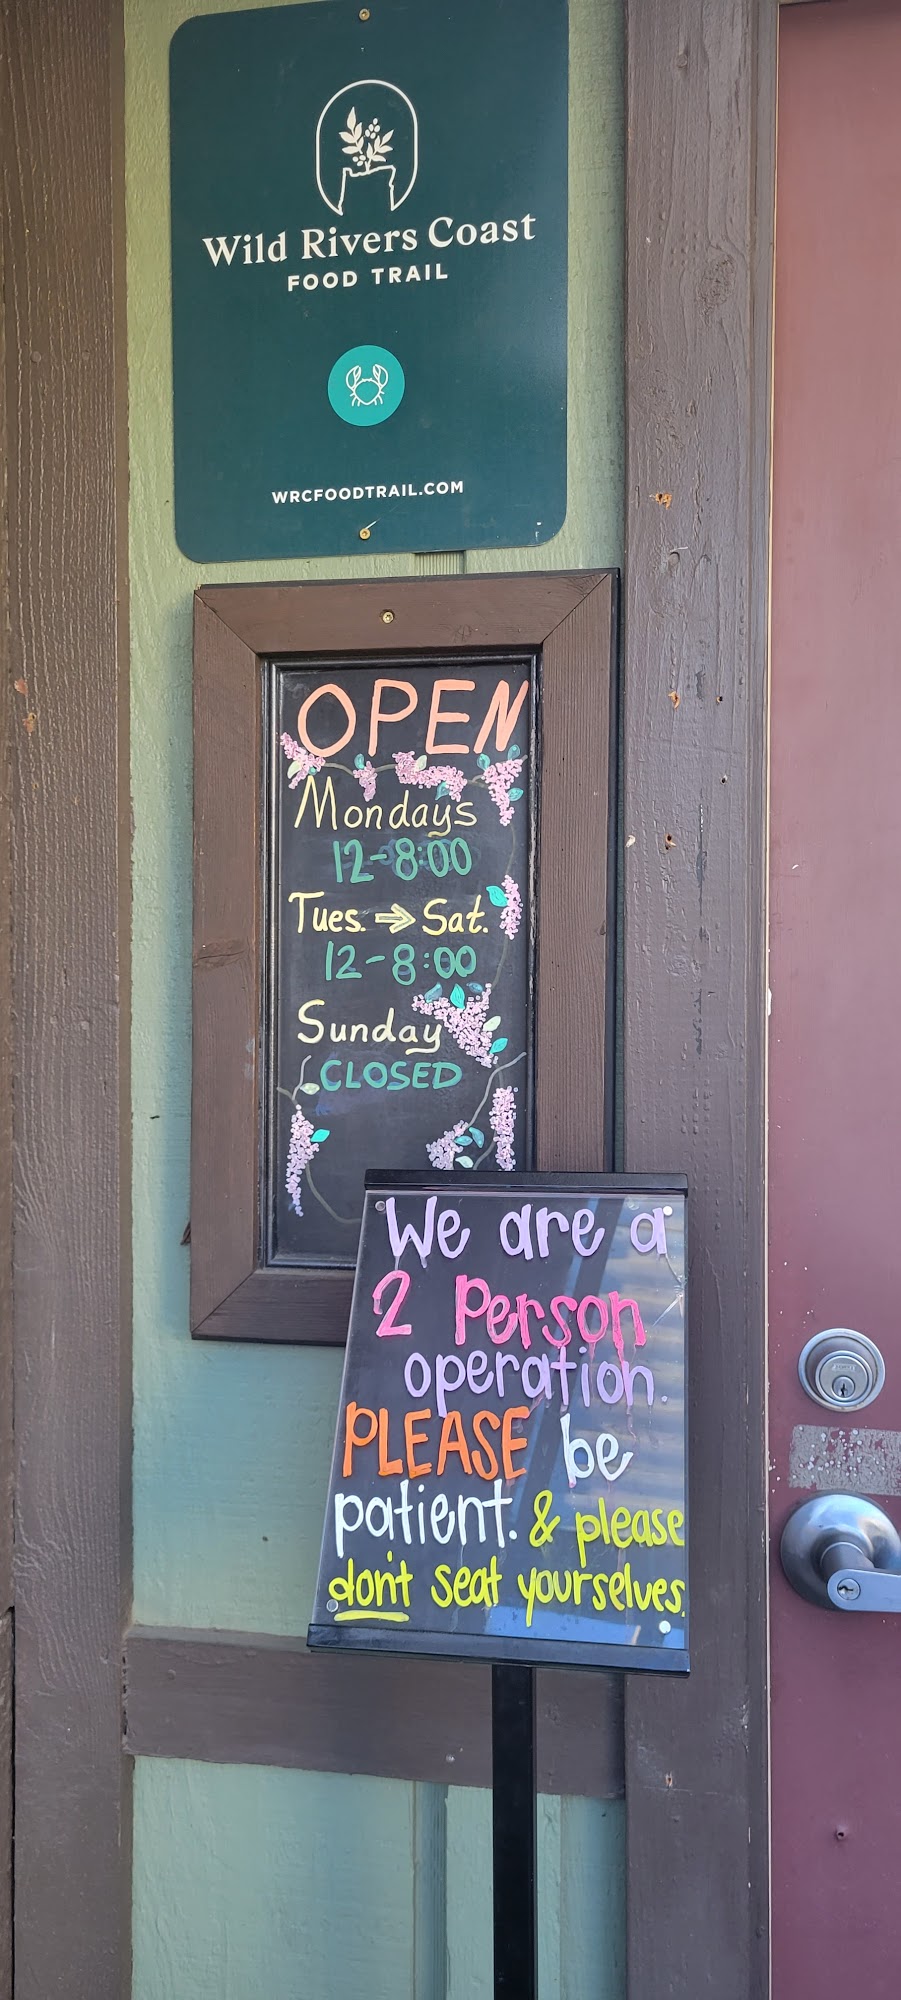 Wild Rivers Coast
FOOD TRAIL
WRCFOODTRAIL.COM
OPEN
Mondays
12-8:00
Tues. ⇒ Sat.
12-8:00
Sunday
CLOSED
We are a
2 Person
operation.
PLEASE be
patient. & please
don't seat yourselves.